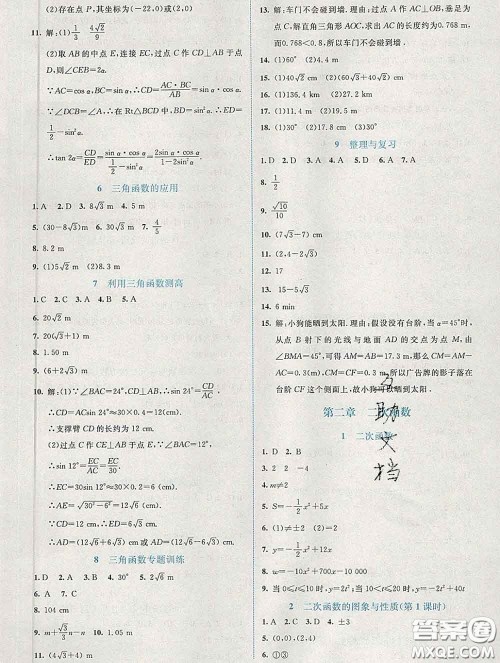 (2)存在点 P,其坐标为(-22.0)或(2,0)
11. 解:(1) 1/3 4√2/9
(2)取 AB 的中点 E,连接 CE,过点 C 作 CD⊥AB 于点
D,则∠CED=2α.
∵AC=cos α,BC=sin α,∴CD=AC·BC/AB=sin α·cos α.
∵∠DCB=∠A=α,∴在 Rt△BCD 中,BD=sin²α.
∴DE=1/2-sin²α.
∴tan 2α=CD/ED=sin α·cos α/(1/2-sin²α)=2sin α·cos α/(1-2sin²α).
6 三角函数的应用
1. A 2. D 3. 8√3 m 4. A
5. (30-8√3)m 6. 30√3 m 7. 4/5
8. 8.2 m
9. (1)5√2 m (2)8.3 m
7 利用三角函数测高
1. C 2. B 3. A 4. A 5. A 6. D
7. 20(√3+1) m
8. 1.50 m
9. (6+2√3)m
10. 解:(1)∵∠BAC=24°,CD⊥AB,∴sin 24°=CD/AC.
∴CD=AC·sin 24°≈30×0.4=12(cm).
∴支撑臂 CD 的长约为 12 cm.
(2)过点 C 作 CE⊥AB 于点 E,当∠BAC=12°时,
∴sin 12°=EC/AC=EC/30.
∴EC=30sin 12°≈30×0.2=6(cm).
∴AE=√(30²-6²)=12√6(cm).
∵CD=12 cm,∴DE=√(12²-6²)=6√3(cm).
∴AD 的长为(12√6+6√3)cm或(12√6-6√3)cm.
8 三角函数专题训练
1. D 2. A 3. A 4. 30° 5. 2√3 m
6. C 7. A
8. 104 cm
9. m/n 10. 1.05 m
11. (4√3+4)m
12. (1)
13. 解:车门不会碰到墙.理由:过点 A 作 AC⊥OB,垂足为
点 C,解直角三角形 AOC,求出 AC 的长度约为0.768 m.
∵0.768<0.8,所以车门不会碰到墙.
14. (1)60° (2)4.5 m
15. (1)40√2 cm (2)80√3 cm
16. (1)136.4 km (2)能
17. (1)20 m (2)19.4 m
18. (1)30° (2)17.8 m
9 整理与复习
1. D 2. C 3. B 4. D 5. D 6. A 7. A
8. 1/2
9. √10/10
10. 30°
11. √2
12. (7√3-7) m
13. 27
14. 6 min
15. 解:小狗能晒到太阳.理由:假设没有台阶,当α=45°时,
从点 B 射下的光线与地面 AD 的交点为点 M,由
∠BMA=45°,可得 AM=AB=17.3 m,那么 CM=AM-
AC=0.3(m),CM=CF=0.3(m),所以广告牌的影子落在
台阶 CF 这个侧面上,故小狗可晒到太阳.
第二章 二次函数
1 二次函数
1. D 2. B
3. 2 2 -4
4. m≠2
5. S=-1/2x²+5x
6. (1)≠±2 (2)=2
7. y=-1/2x²+15x
8. w=-10x²+100x
9. 当 0≤t≤10 时,y=2t²;当 10<t≤20 时,y=20t
2 二次函数的图象与性质(第 1 课时)
1. B 2. C 3. D 4. ±3
5. (0,0),(2,4)
6. ①③
互助文档
答案圈
MXQE.COM